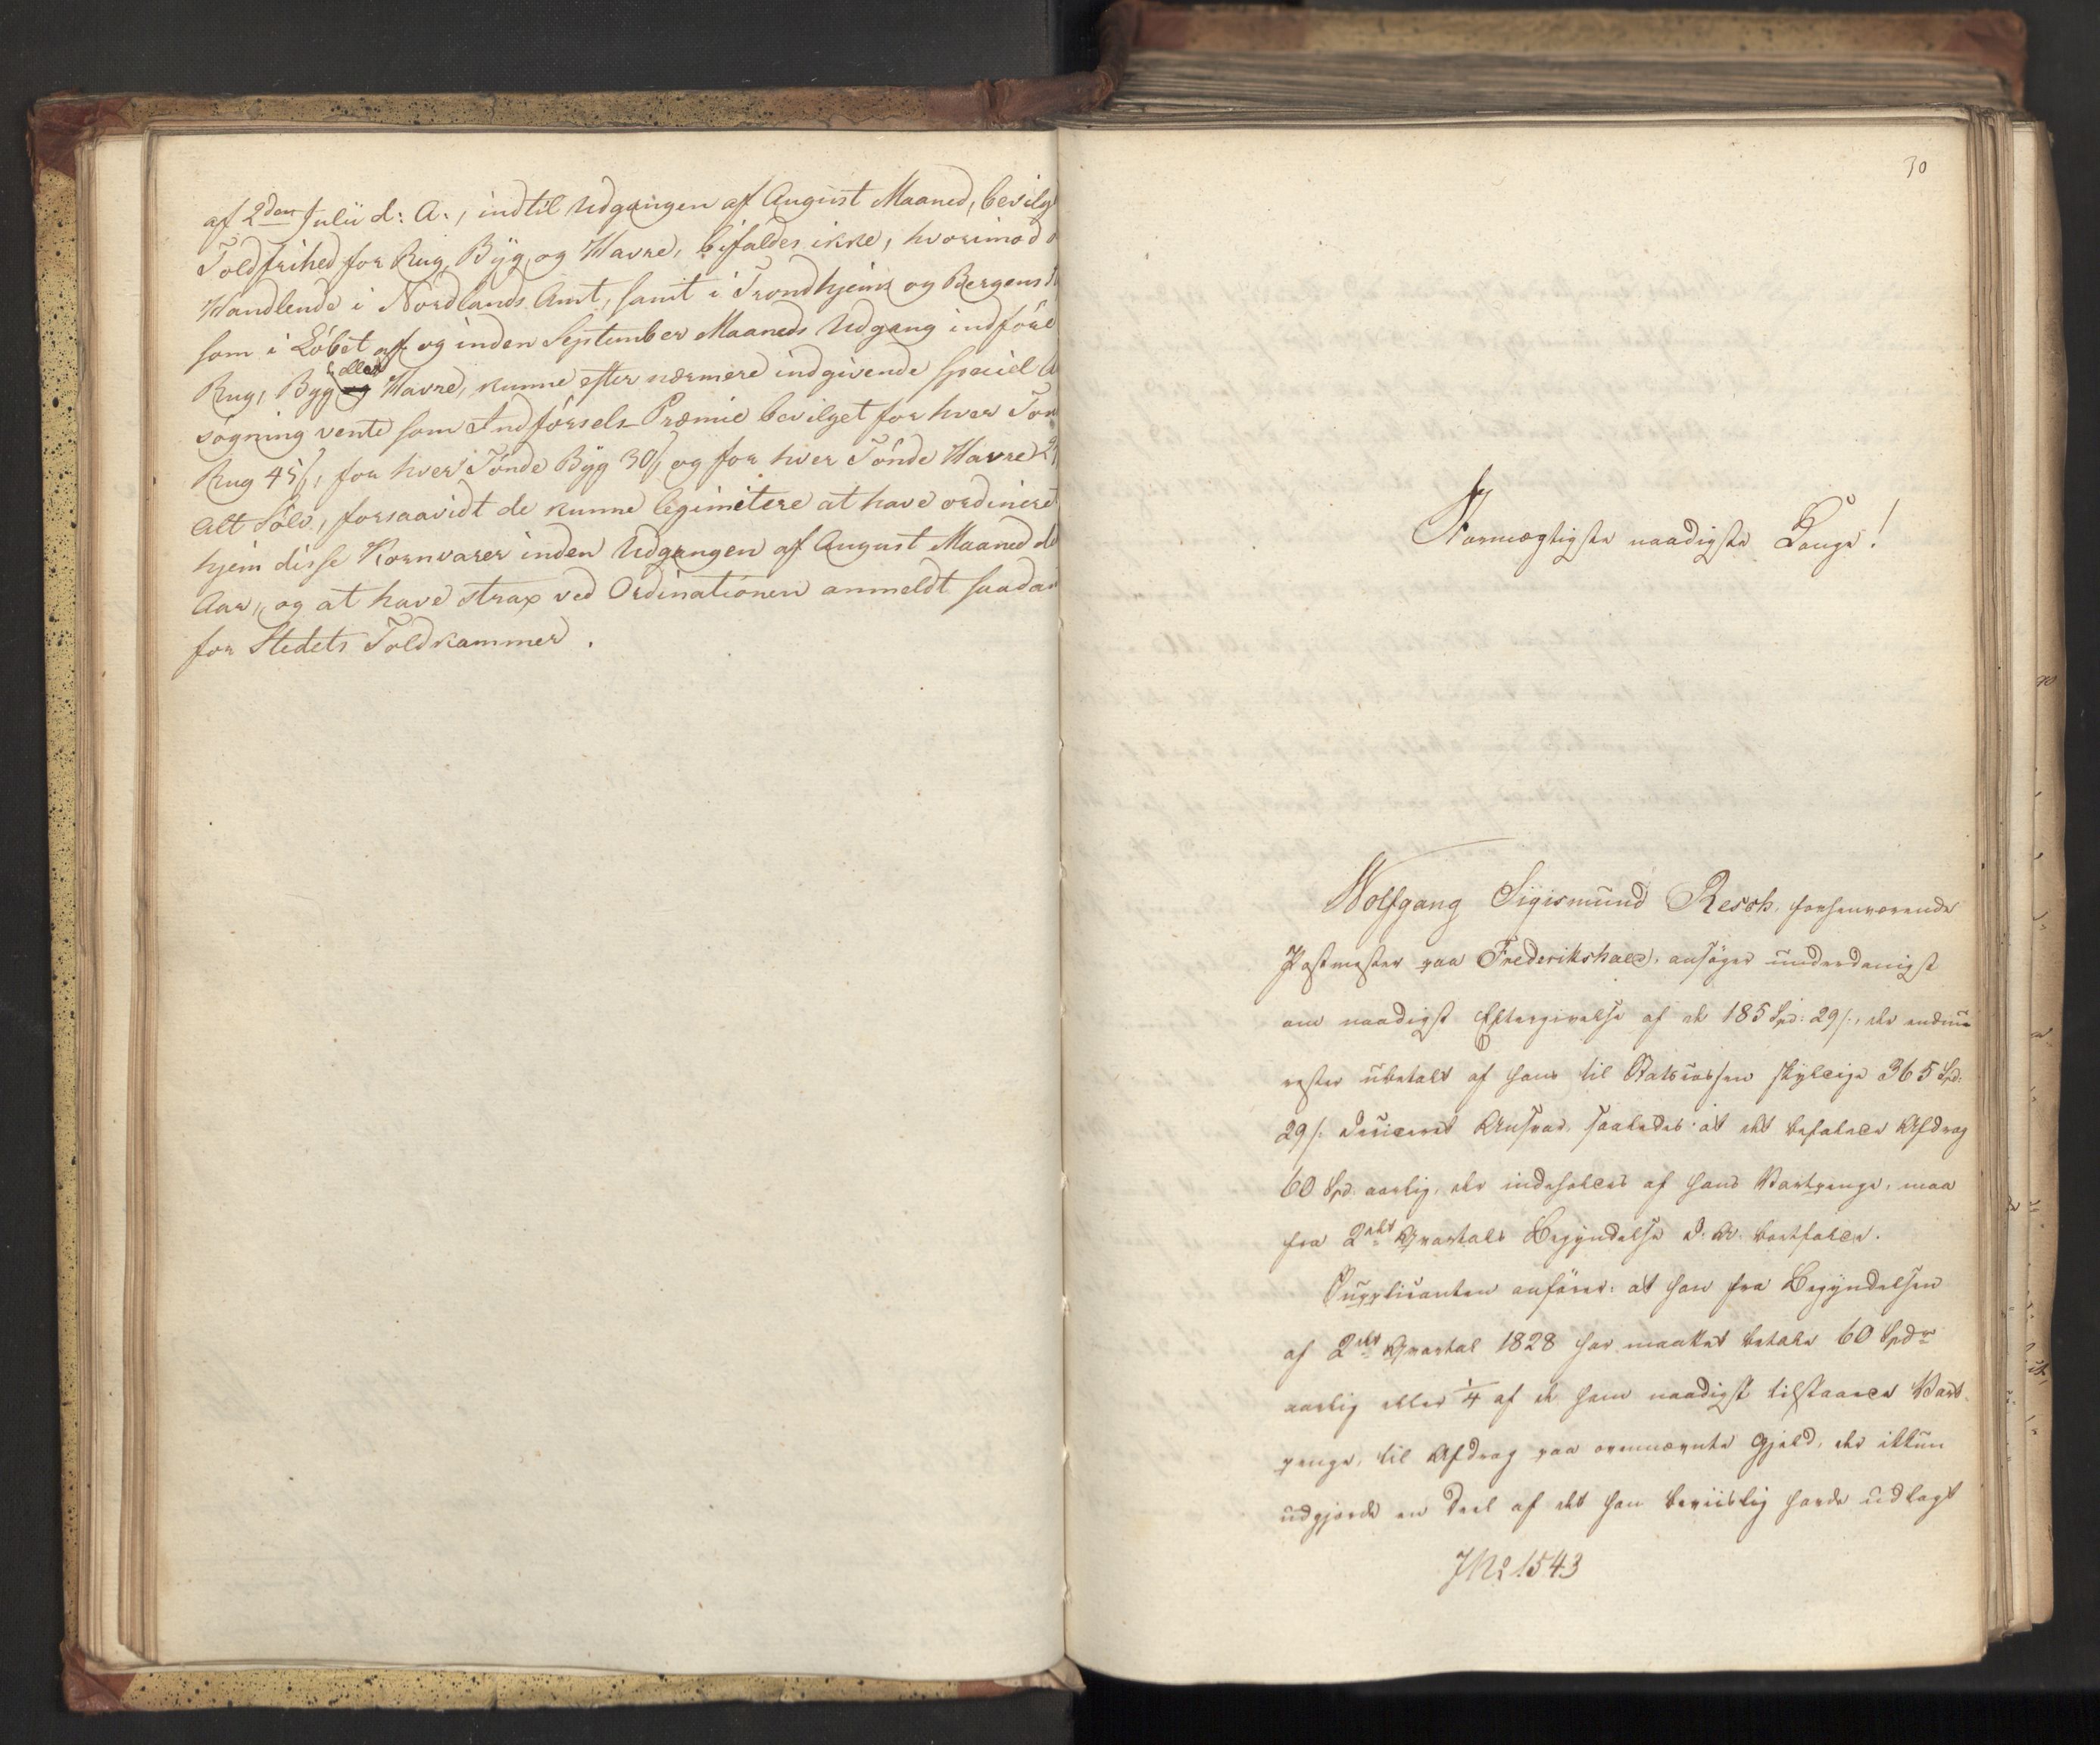 af 2den Julii d: A:, indtil Udgangen af August Maaned, bevilg
Toldfrihed for Rug, Byg, og Havre, bifaldes ikke, hvorimod d
Handlende i Nordlands Amt, samt i Trondhjems og Bergens
som i Løbet af og inden September Maaneds Udgang indføre
Rug, Byg eller Havre, kunne efter nærmere indgivende speciel A
søgning vente som Indførsels-Præmie bevilget for hver Tøn
Rug 45 ß, for hver Tønde Byg 30 ß, og for hver Tønde Havre 2
Alt Sølv, forsaavidt de kunne legimitere at have ordineret
hjem disse Kornvarer inden Udgangen af August Maaned de
Aar, og at have strax ved Ordinationen anmeldt saadan
for Stedets Toldkammer.
30
Stormægtigste naadigste Konge!
Wolfgang Sigismund Resch, forhenværende
Postmester paa Frederikshald, ansøger underdanigst
om naadigst Eftergivelse af de 185 Spd: 29 ß, der endnu
rester ubetalt af hans til Statscassen skyldige 365 Spd:
29 ß. deciceret Ansvar, saaledes at det befalede Afdrag
60 Spd. aarlig, der indeholdes af hans Vartpenge, maa
fra 2det Qvartals Begyndelse d. A. bortfalde.
Supplicanten anfører: at han fra Begyndelsen
af 2det Qvartal 1828 har maattet betale 60 Spdr
aarlig eller 1/4 af de ham naadigst tilstaaede Vart-
penge, til Afdrag paa ovennævnte Gjeld, der ikkun
udgjorde en Deel af det han beviislig havde udlagt
J No 1543